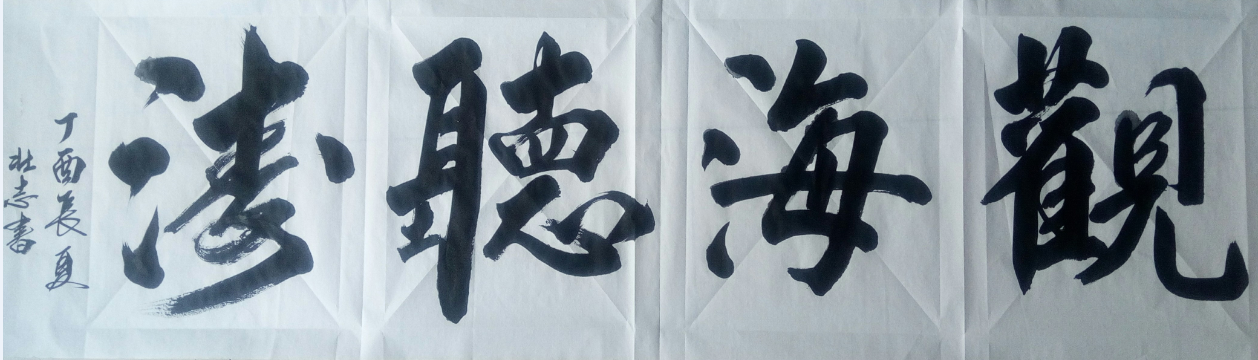 觀海聽濤
丁酉長夏
壯志書